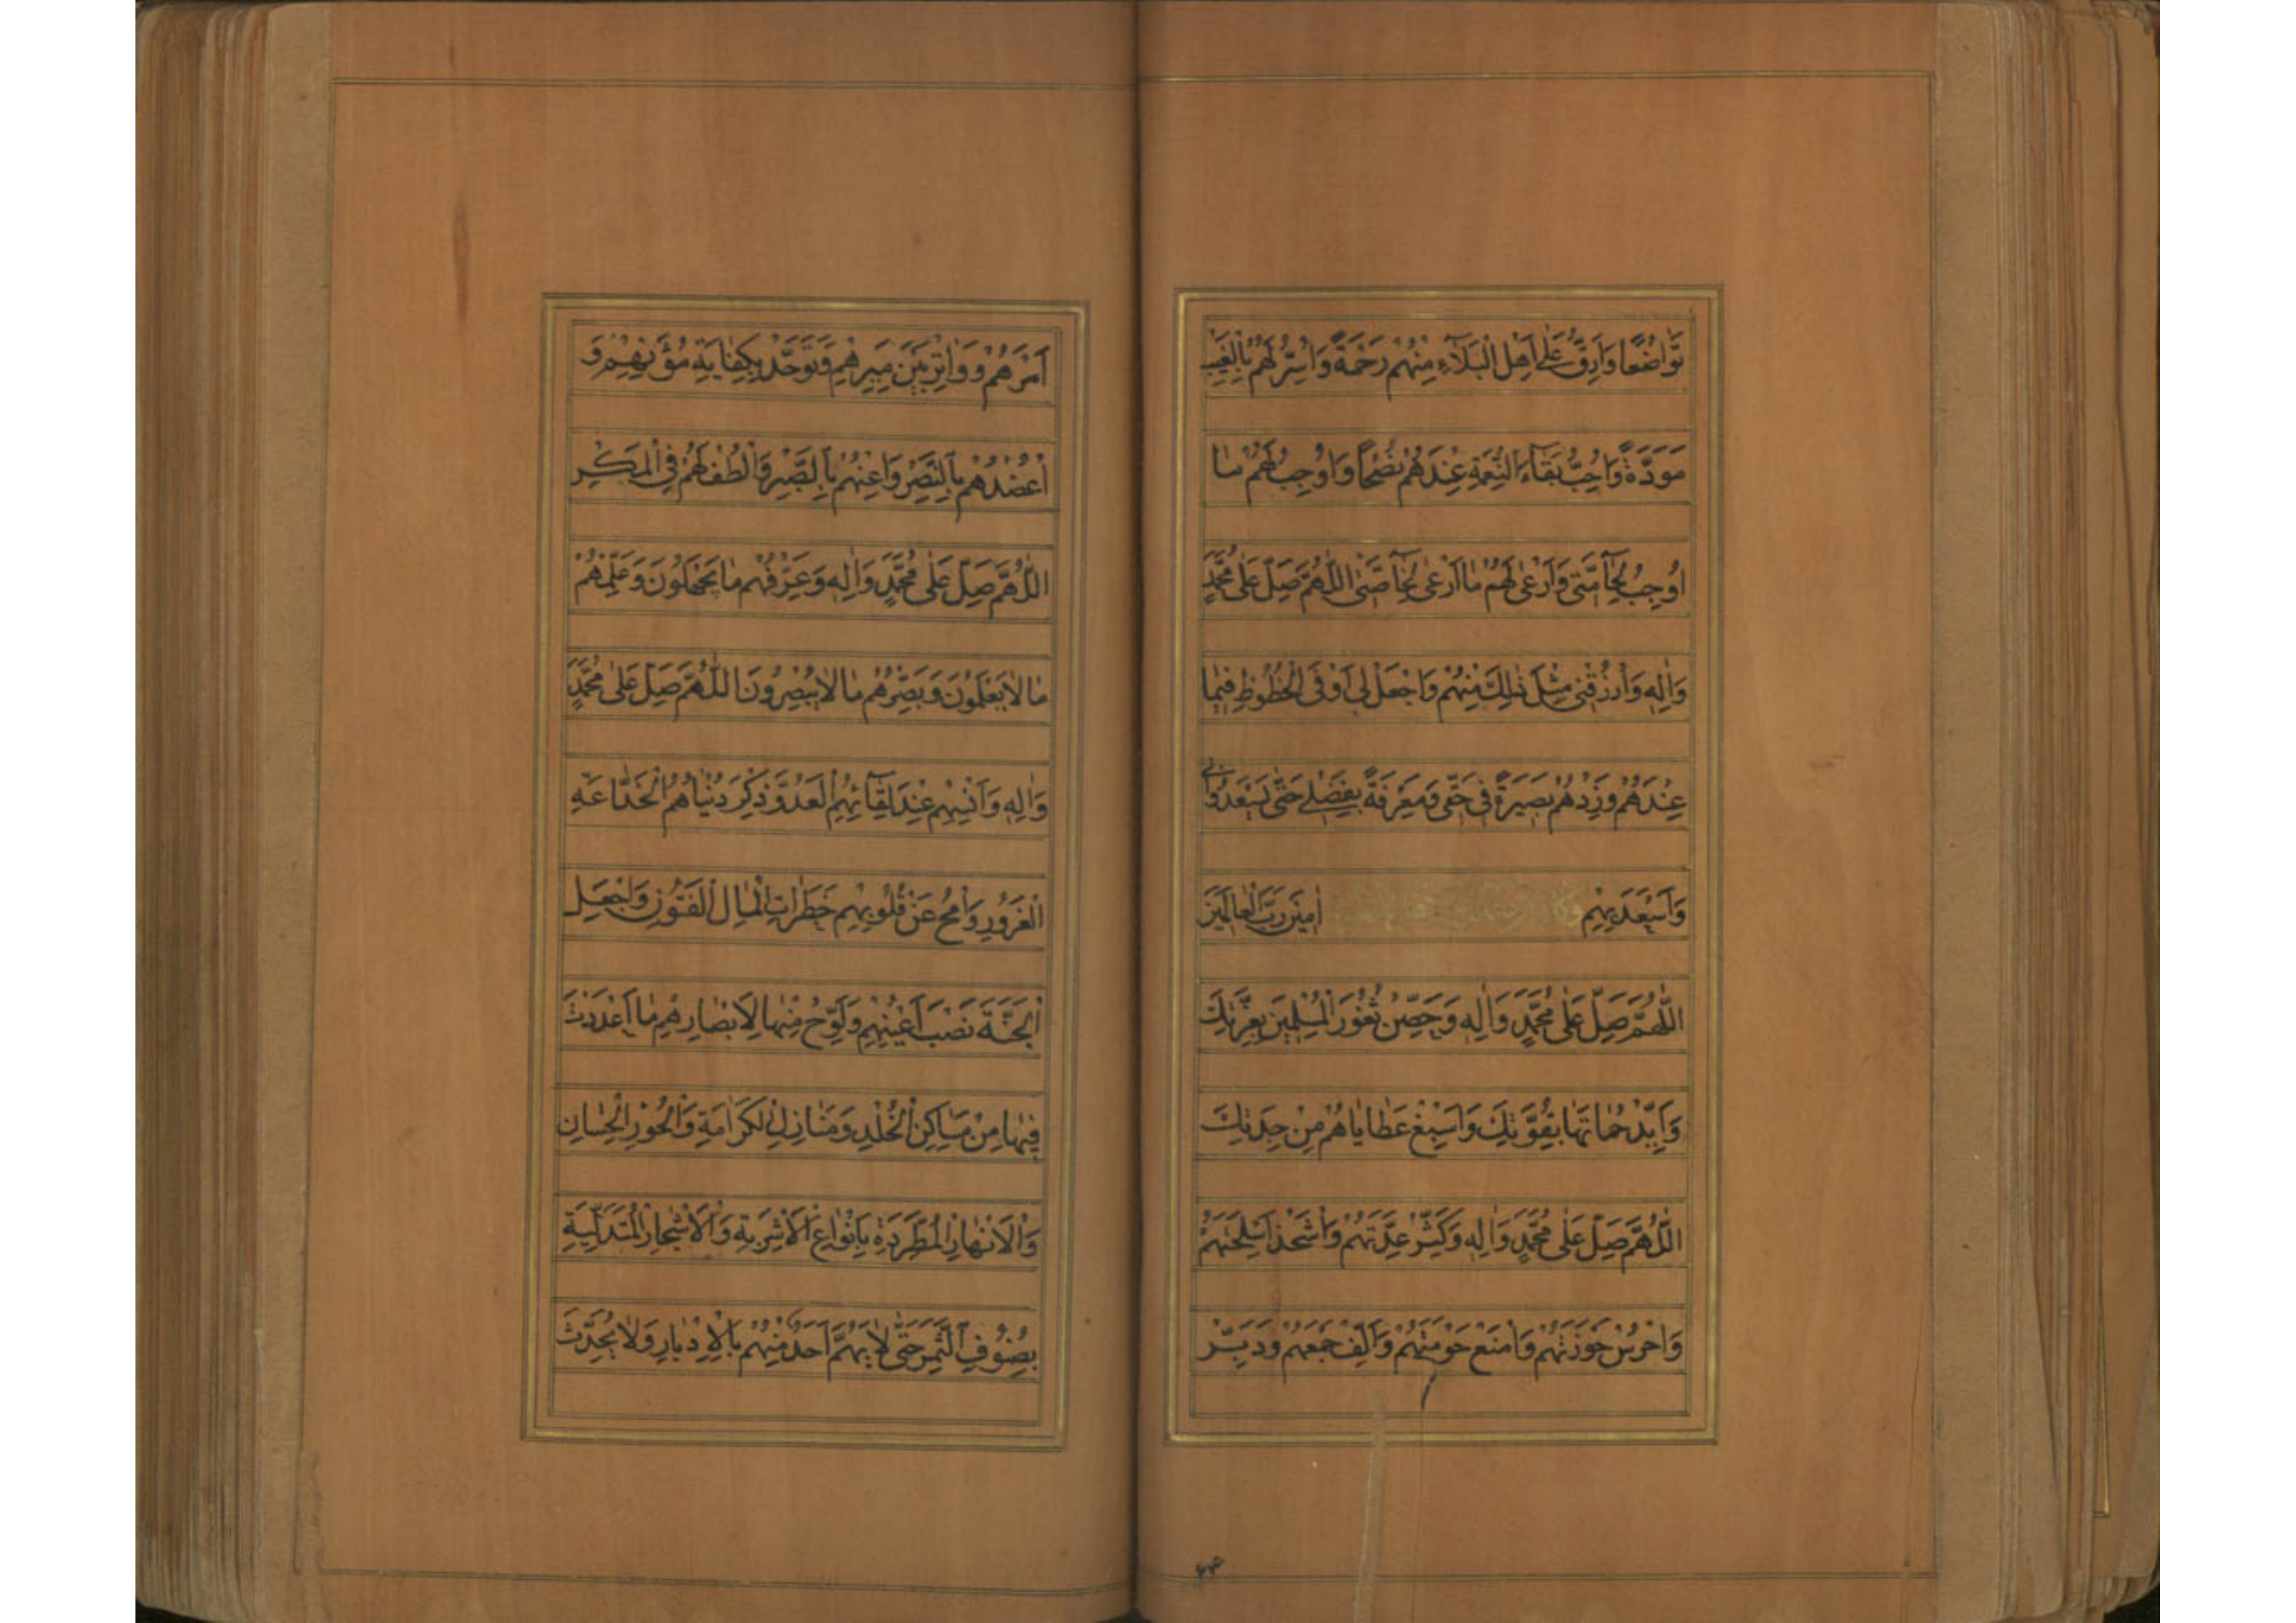 تَوَاضُعًا وَاَرِقُّ عَلٰى اَهْلِ الْبَلَآءِ مِنْهُمْ رَحْمَةً وَاُسِرُّ لَهُمْ بِالْغَيْبِ
مَوَدَّةً وَاُحِبُّ بَقَآءَ النِّعْمَةِ عِنْدَهُمْ نُصْحًا وَاُوْجِبُ لَهُمْ مٰا
اُوْجِبُ لِحٰآمَّتى وَاَرْعٰى لَهُمْ مٰا اَرْعٰى لِخٰآصَّتى اَللّٰهُمَّ صَلِّ عَلٰى مُحَمَّدٍ
وَاٰلِهِ وَارْزُقْنى مِثْلَ ذٰلِكَ مِنْهُمْ وَاجْعَلْ لى اَوْفَى الْحُظُوظِ فيمٰا
عِنْدَهُمْ وَزِدْهُمْ بَصيرَةً فى حَقّى وَمَعْرِفَةً بِفَضْلى حَتّٰى يَسْعَدُوا بى
وَاَسْعَدَ بِهِمْ اٰمينَ رَبَّ الْعٰالَمينَ
اَللّٰهُمَّ صَلِّ عَلٰى مُحَمَّدٍ وَاٰلِهِ وَحَصِّنْ ثُغُورَ الْمُسْلِمينَ بِعِزَّتِكَ
وَاَيِّدْ حُمٰاتَهٰا بِقُوَّتِكَ وَاَسْبِغْ عَطٰايٰاهُمْ مِنْ جِدَتِكَ
اَللّٰهُمَّ صَلِّ عَلٰى مُحَمَّدٍ وَاٰلِهِ وَكَثِّرْ عِدَّتَهُمْ وَاشْحَذْ اَسْلِحَتَهُمْ
وَاحْرُسْ حَوْزَتَهُمْ وَامْنَعْ حَوْمَتَهُمْ وَاَلِّفْ جَمْعَهُمْ وَدَبِّرْ
۴۴
اَمْرَهُمْ وَوٰاتِرْ بَيْنَ مِيَرِهِمْ وَتَوَحَّدْ بِكِفٰايَةِ مُؤَنِهِمْ وَ
اعْضُدْهُمْ بِالنَّصْرِ وَاَعِنْهُمْ بِالصَّبْرِ وَالْطُفْ لَهُمْ فِى الْمَكْرِ
اَللّٰهُمَّ صَلِّ عَلٰى مُحَمَّدٍ وَاٰلِهِ وَعَرِّفْهُمْ مٰا يَجْهَلُونَ وَعَلِّمْهُمْ
مٰا لاٰ يَعْلَمُونَ وَبَصِّرْهُمْ مٰا لاٰ يُبْصِرُونَ اَللّٰهُمَّ صَلِّ عَلٰى مُحَمَّدٍ
وَاٰلِهِ وَاَنْسِهِمْ عِنْدَ لِقٰآئِهِمُ الْعَدُوَّ ذِكْرَ دُنْيٰاهُمُ الْخَدّٰاعَةِ
الْغَرُورِ وَامْحُ عَنْ قُلُوبِهِمْ خَطَرٰاتِ الْمٰالِ الْفَتُونِ وَاجْعَلِ
الْجَنَّةَ نَصْبَ اَعْيُنِهِمْ وَلَوِّحْ مِنْهٰا لِاَبْصٰارِهِمْ مٰا اَعْدَدْتَ
فيهٰا مِنْ مَسٰاكِنِ الْخُلْدِ وَمَنٰازِلِ الْكَرٰامَةِ وَالْحُورِ الْحِسٰانِ
وَالْاَنْهٰارِ الْمُطَّرِدَةِ بِاَنْوٰاعِ الْاَشْرِبَةِ وَالْاَشْجٰارِ الْمُتَدَلِّيَةِ
بِصُنُوفِ الثَّمَرِ حَتّٰى لاٰ يَهُمَّ اَحَدٌ مِنْهُمْ بِالْاِدْبٰارِ وَلاٰ يُحَدِّثَ